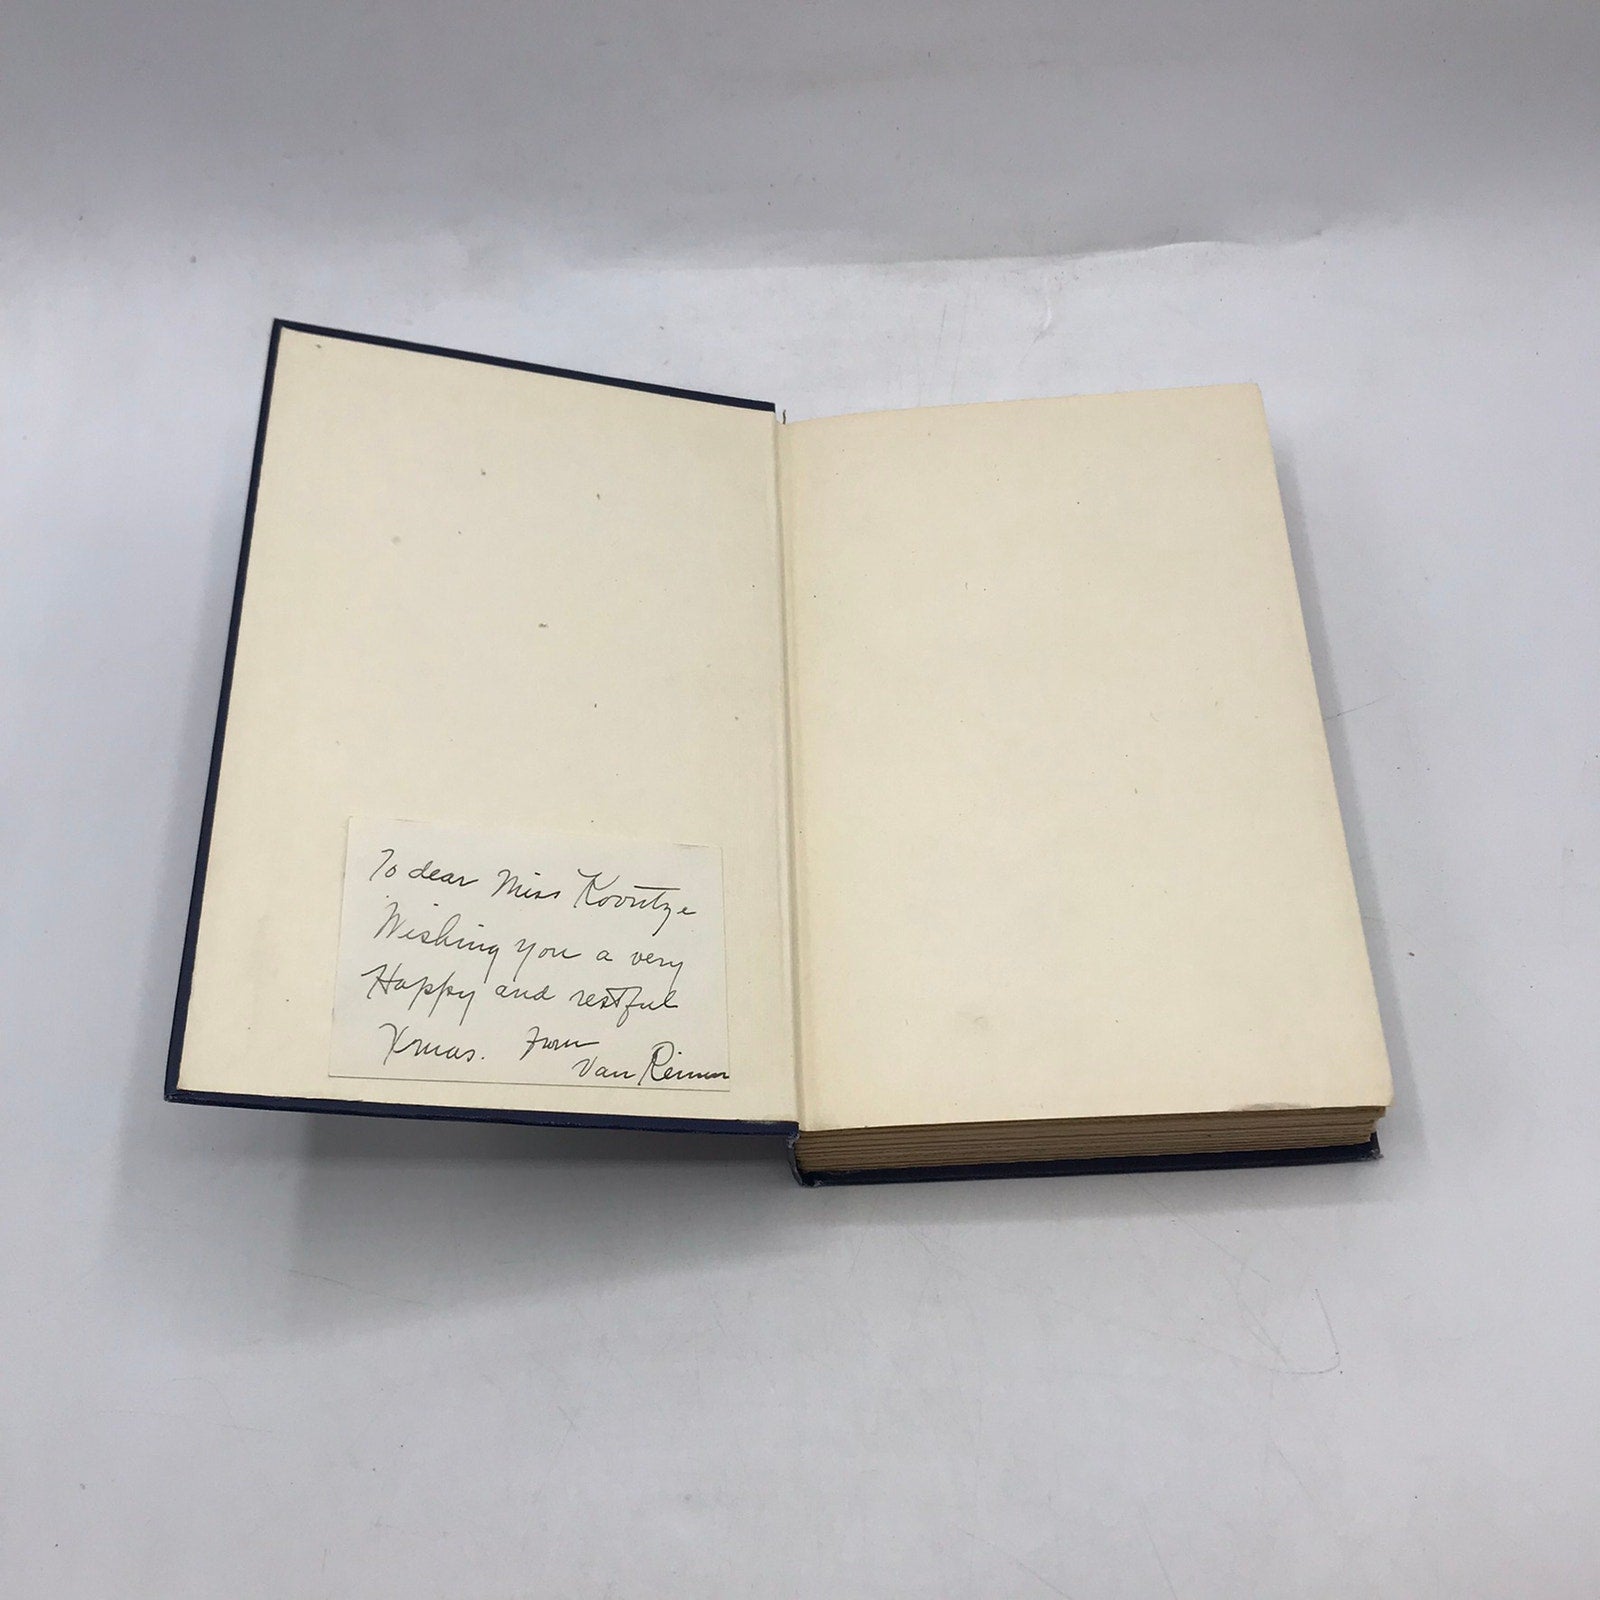 To dear Miss Koontze
Wishing you a very
Happy and restful
Xmas. From
Van